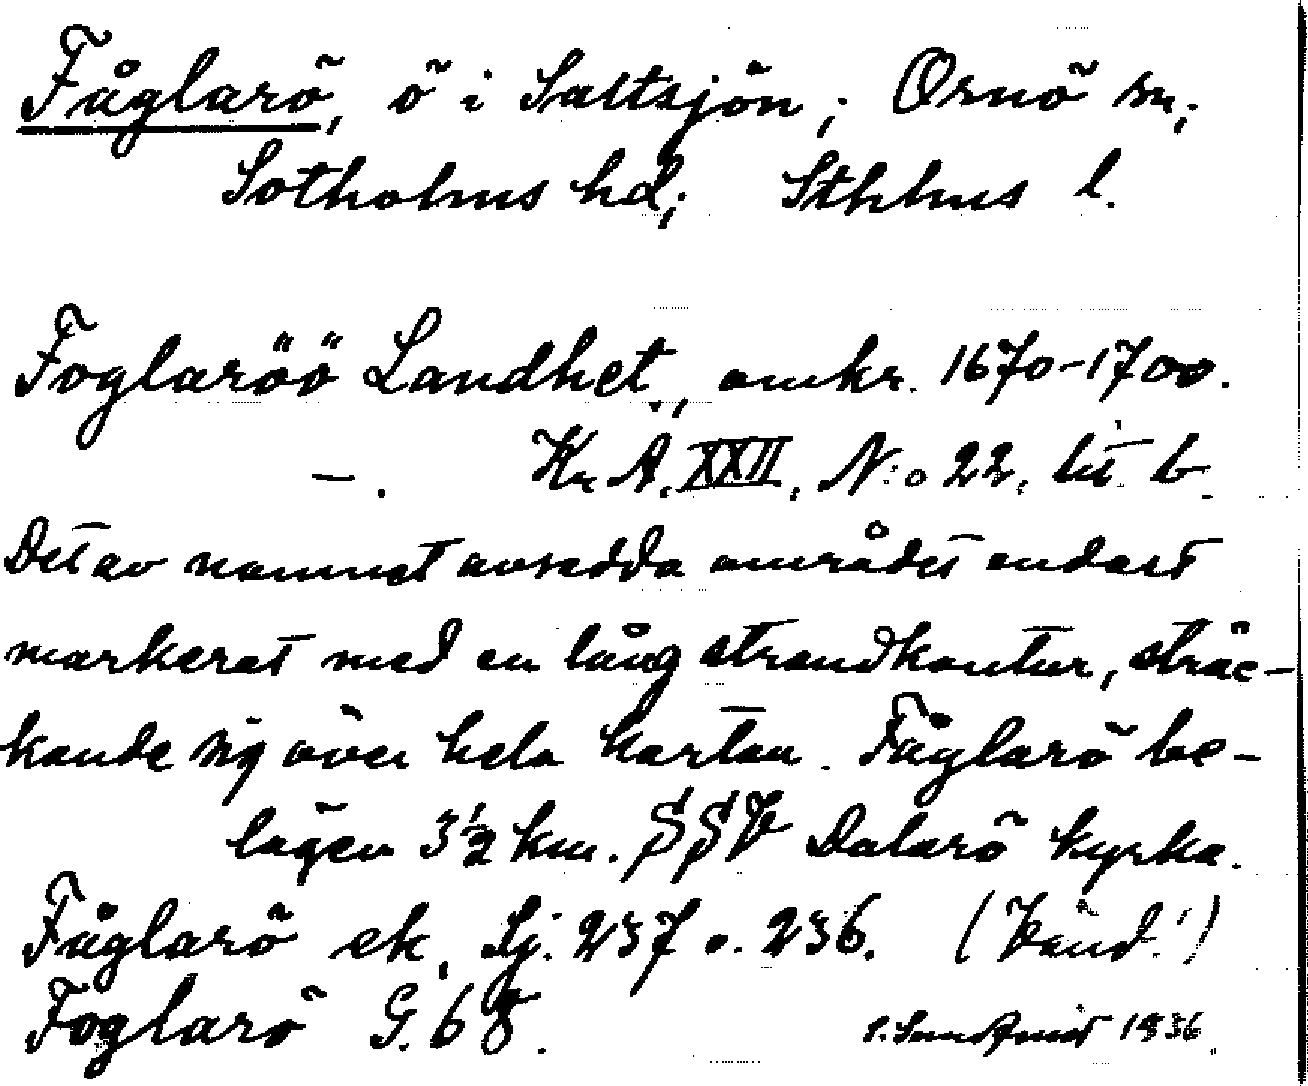 Fåglarö, ö i Saltsjön; Ornö sn;
Sotholms hd; Sthlms l.
Foglaröö Landhet., omkr. 1670-1700.
—. Kr. A. XXII, N:o 22, lit b.
Det av namnet avsedda området endast
markerat med en lång strandkontur, sträc-
kande sig över hela kartan. Fåglarö be-
lägen 3½ km. SSV Dalarö kyrka.
Fåglarö ek. Sj. 237 o. 236. (Vänd!)
Foglarö G. 68.
1936